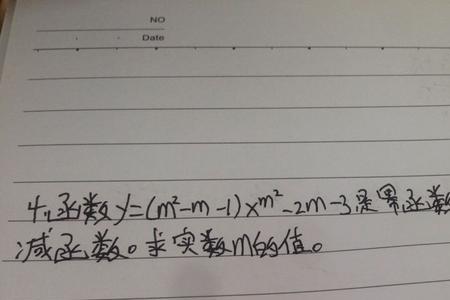 NO
Date
4.函数y=(m²-m-1)x^m²-2m-3是幂函数
减函数。求实数m的值。